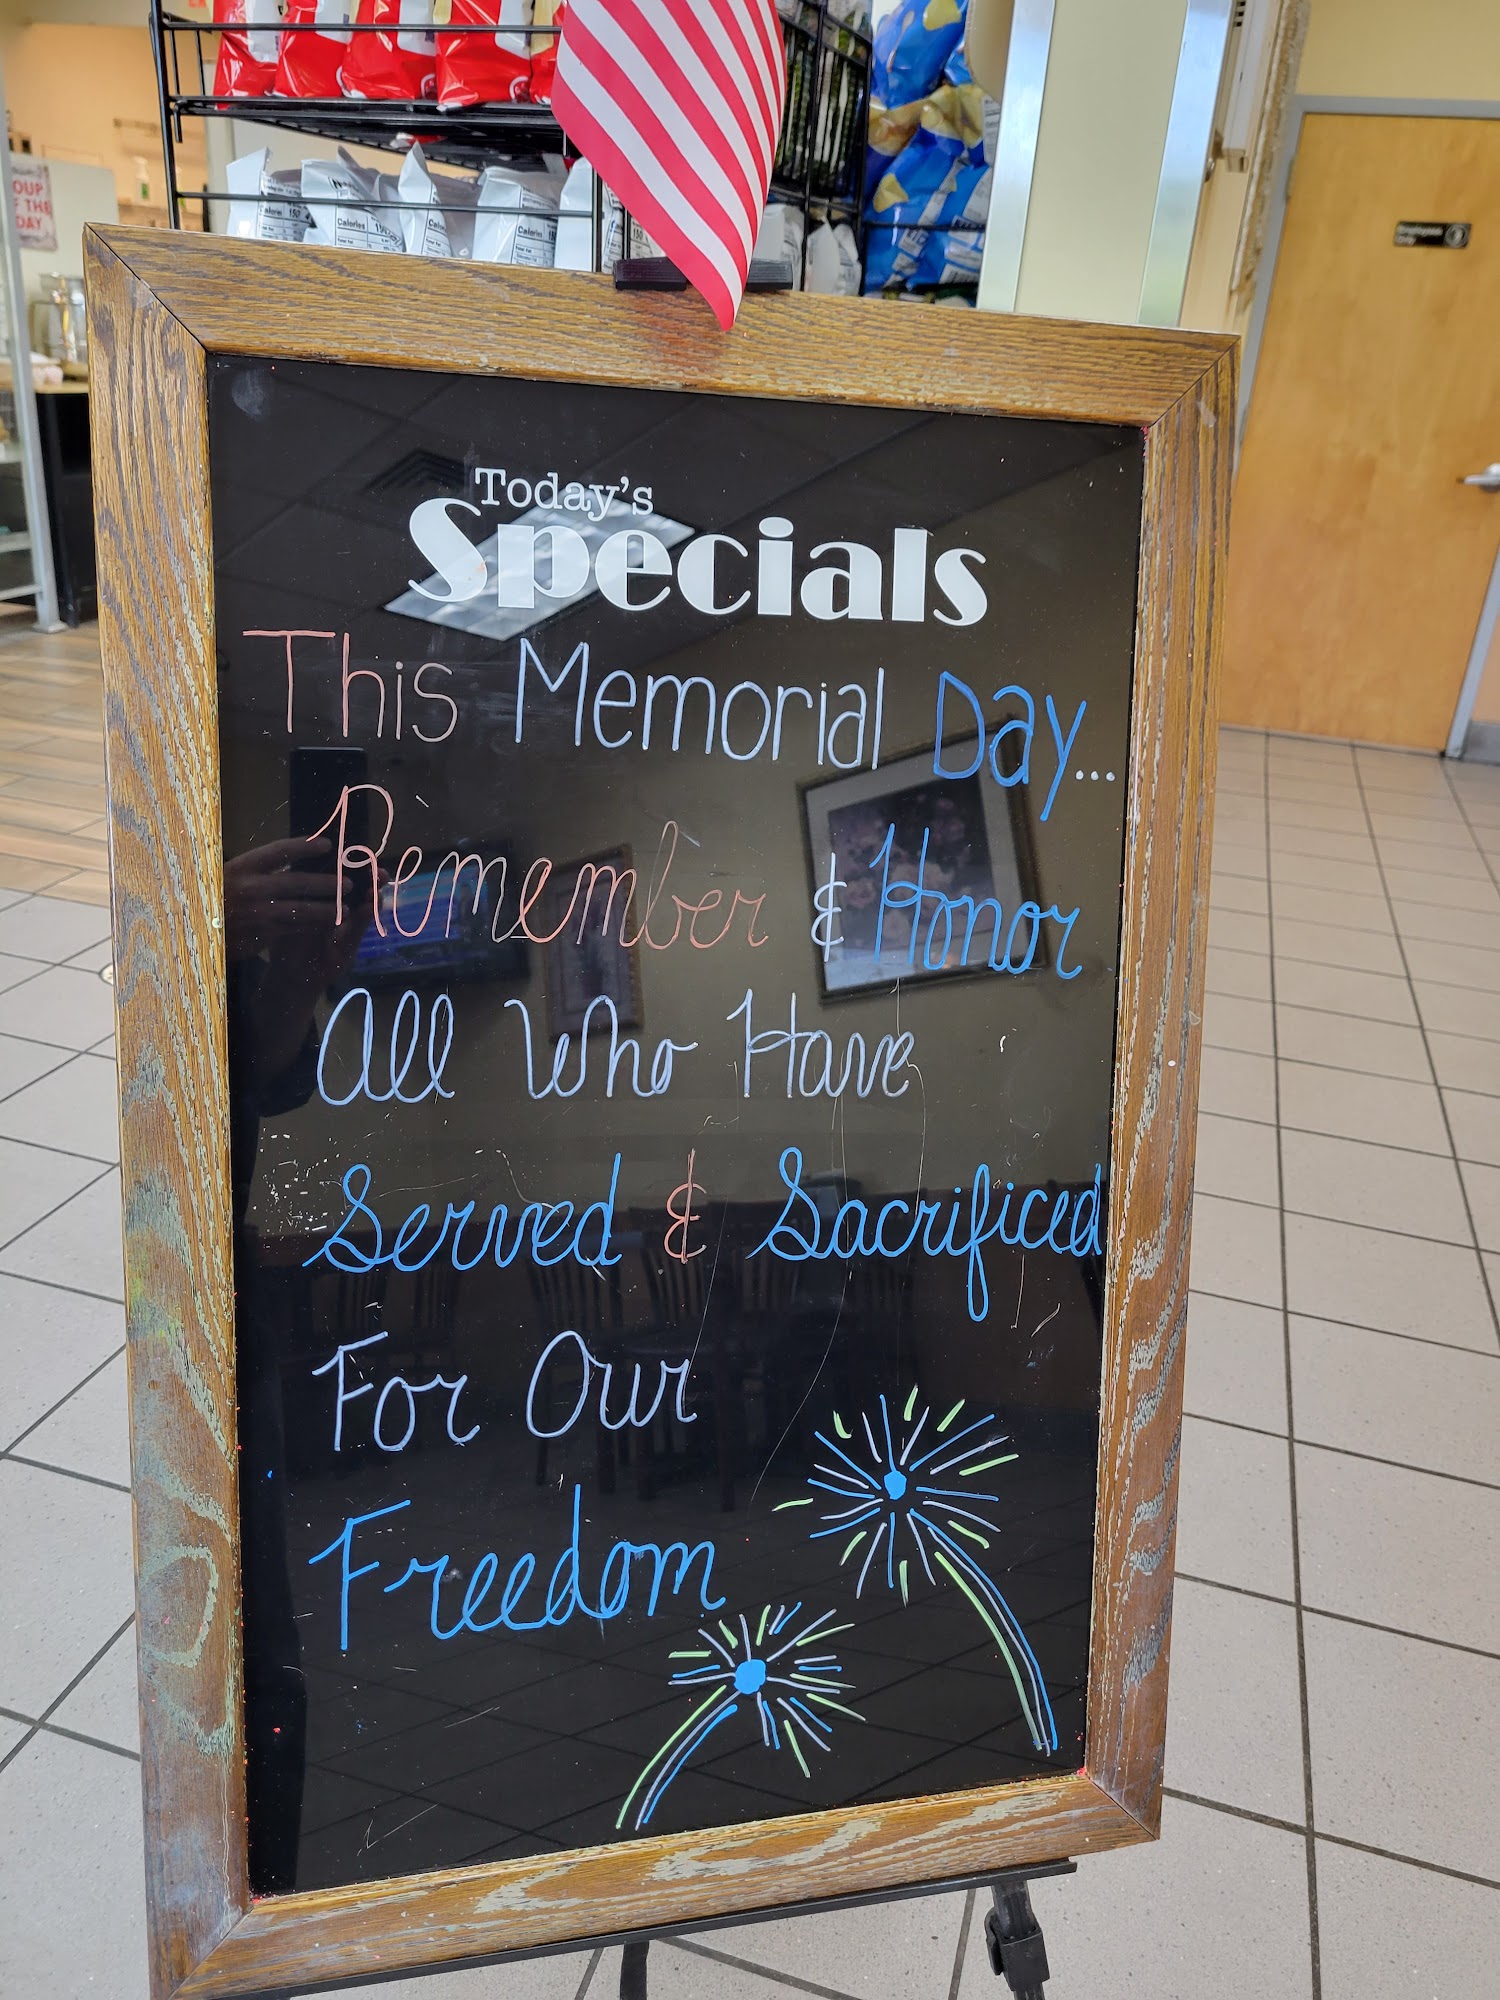 OUP
F THE
DAY
Calories 150
Calories
Today's
Specials
This Memorial Day...
Remember & Honor
All Who Have
Served & Sacrificed
For Our
Freedom
Employees
Only